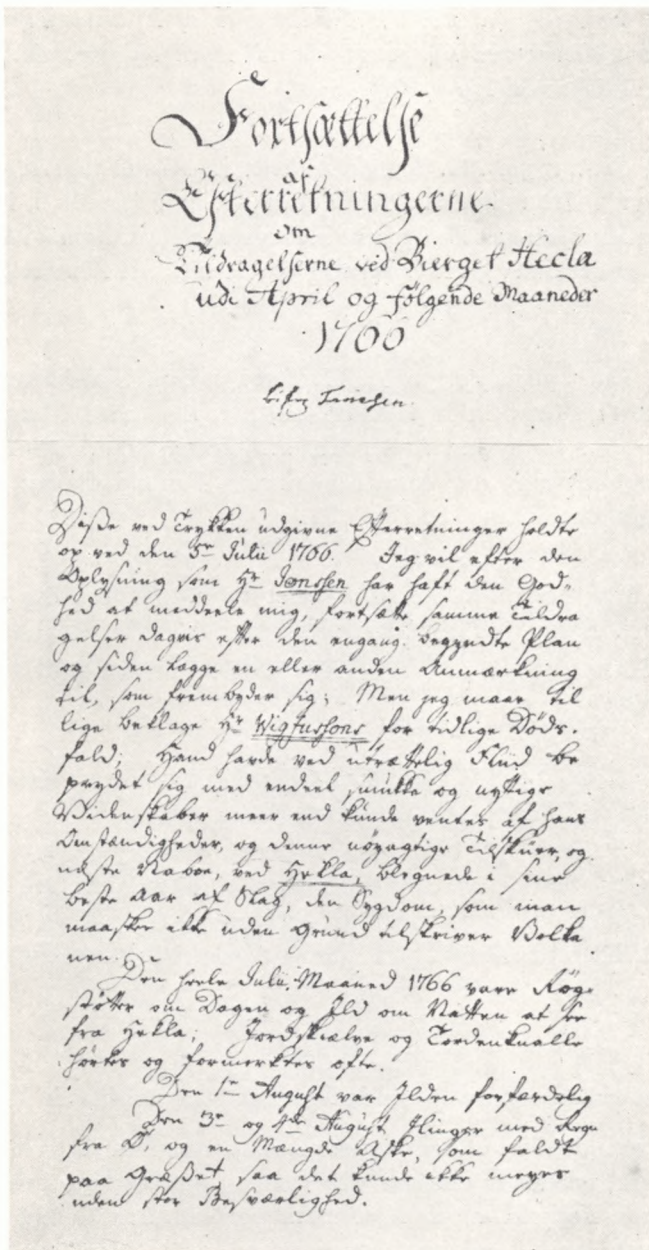 Fortsættelse
af
Efterretningerne
om
Tildragelserne ved Bierget Hecla
udi April og følgende Maaneder
1766
Disse ved Trykken udgivne Efterretninger holdte
op ved den 5te Julii 1766. Jeg vil efter den
Oplysning som Hr Jonssen har haft den God-
hed at meddeele mig, fortsætte samme Tildra
gelser dagvis efter den engang begyndte Plan
og siden lægge en eller anden Anmærkning
til, som frembyder sig; Men jeg maae til
lige beklage Hr Wigfussons for tidlige Døds-
fald; Hand hafde ved utrættelig Fliid be
prydet sig med endeel smukke og nyttige
Videnskaber meer end kunde ventes af hans
Omstændigheder, og denne nøyagtige Tilskuer, og
næste Naboe, ved Hekla, blegnede i sine
beste Aar af Slag, den Sygdom, som man
maaskee ikke uden Grund tilskriver Volka
nen.
Den heele Julii Maaned 1766 vare Røg-
støtter om Dagen og Ild om Natten at see
fra Hekla; Jordskiælve og Tordenknalle
hørtes og formerktes ofte.
Den 1te August var Ilden forfærdelig
Den 3e og 4de August Ilinger med Regn
fra O, og en Mængde Aske, som faldt
paa Græsset, saa det kunde ikke meyes
uden stor Besværlighed.